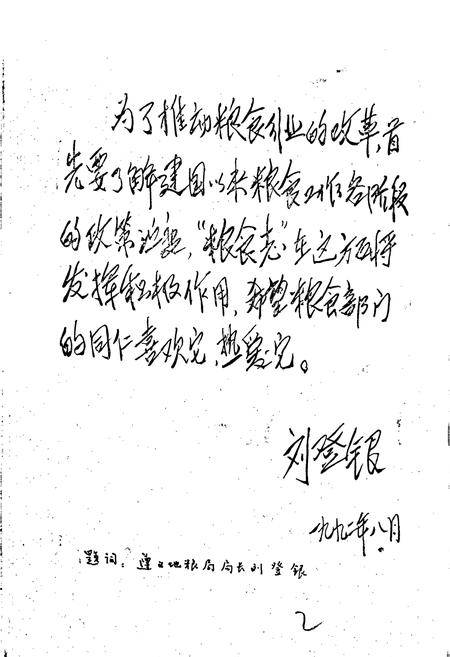 为了推动粮食行业的改革,首
先要了解建国以来粮食工作各阶段
的政策沿革,“粮食志”在这方面将
发挥积极作用,希望粮食部门
的同仁喜欢它,热爱它。
刘登银
一九九二年八月
题词:遵义地粮局局长刘登银
2